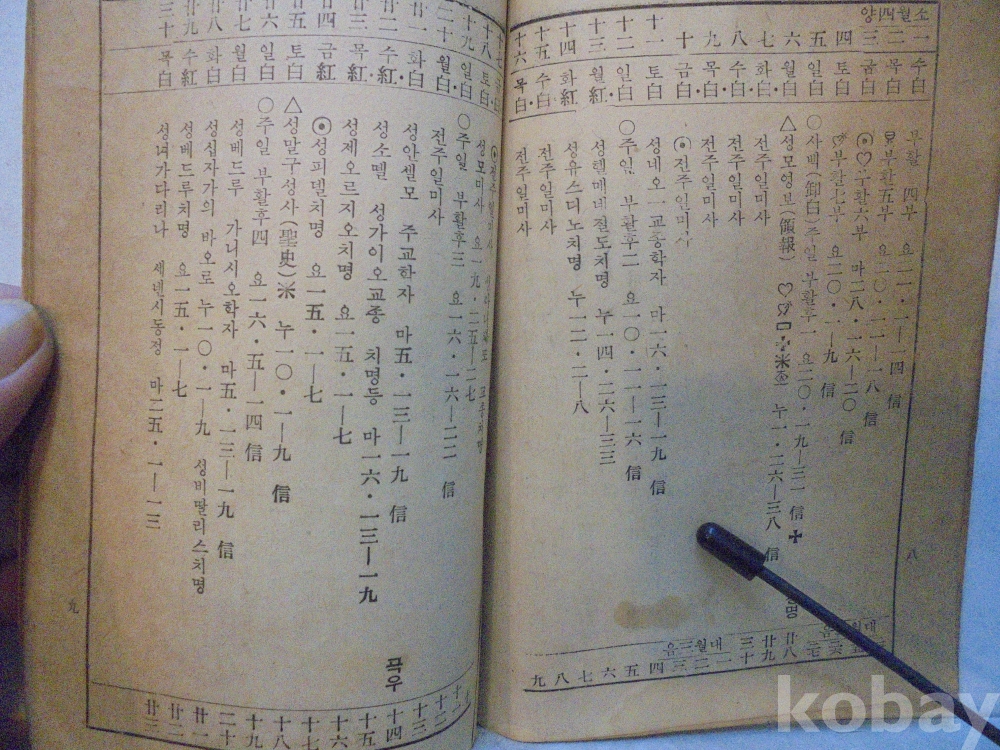 양四월소
一 수白 부활 四부 요二一・一—一四 信
二 목白 부활五부 요二〇・一一—一八 信
三 금白 ⊙♡부활六부 마二八・一六—二〇 信
四 토白 부활七부 요二〇・一—九 信
五 일白 ○사백(卸白)주일 부활후一 요二〇・一九—三一 信 ✠
六 월白 △성모영보(領報) 누一・二六—三八 信
七 화白 전주일미사
八 수白 전주일미사
九 목白 전주일미사
十 금白 ⊙전주일미사
十一 토白 성네오一교종학자 마一六・一三—一九 信
十二 일白 ○주일 부활후二 요一〇・一一—一六 信
十三 월紅 성헬메네젤도치명 누一四・二六—三三
十四 화紅 성유스디노치명 누一二・二—八
十五 수白 전주일미사
十六 목白 전주일미사
음三월대
廿八 廿九 三十 一 二 三 四 五 六 七 八 九
八
十八 토白 성모미사 요一九・二五—二七
十九 일白 ○주일 부활후三 요一六・一六—二二 信
二十 월白 전주일미사
廿一 화白 성안셀모 주교학자 마五・一三—一九 信 곡우
廿二 수紅 성소뗄 성가이오교종 치명등 마一六・一三—一九
廿三 목紅 성제오르지오치명 요一五・一—七
廿四 금紅 ⊙성피델치명 요一五・一—七
廿五 토白 △성말구성사(聖史)米 누一〇・一—九 信
廿六 일白 ○주일 부활후四 요一六・五—一四 信
廿七 월白 성베드루 가니시오학자 마五・一三—一九 信
廿八 화白 성십자가의 바오로 누一〇・一—九 성비딸리스치명
廿九 수紅 성베드루치명 요一五・一—七
三十 목白 성녀가다리나 세넨시동정 마二五・一—一三
十三 十四 十五 十六 十七 十八 十九 二十 廿一 廿二 廿三
九
kobay